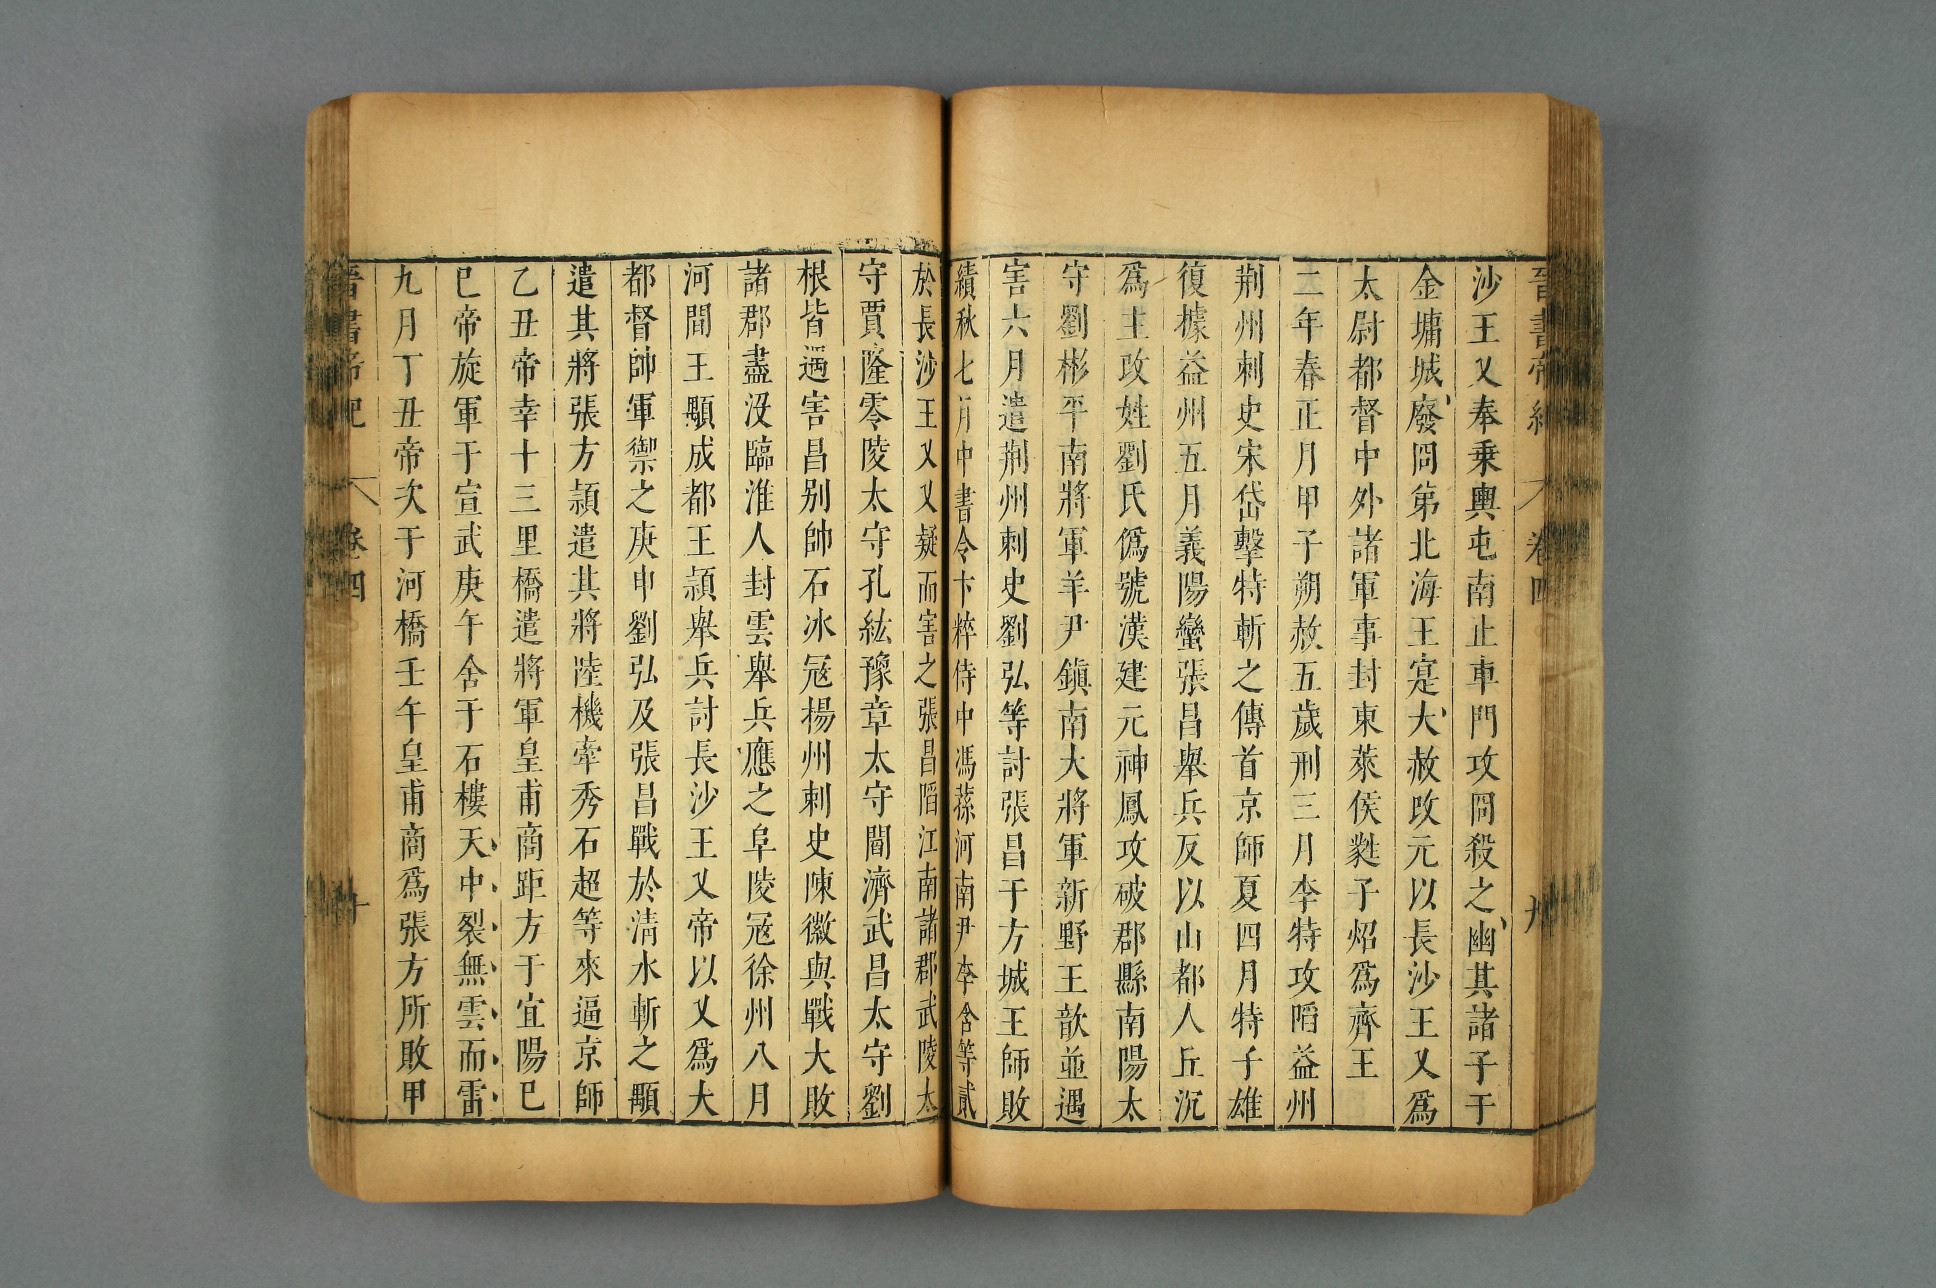 晉書帝紀 卷四 九
沙王乂奉乗輿屯南止車門攻冏殺之幽其諸子于
金墉城廢冏弟北海王寔大赦改元以長沙王乂爲
太尉都督中外諸軍事封東萊侯蕤子炤爲齊王
二年春正月甲子朔赦五歲刑三月李特攻陷益州
荆州刺史宋岱擊特斬之傳首京師夏四月特子雄
復據益州五月義陽蠻張昌舉兵反以山都人丘沉
爲主改姓劉氏僞號漢建元神鳳攻破郡縣南陽太
守劉彬平南將軍羊尹鎮南大將軍新野王歆並遇
害六月遣荆州刺史劉弘等討張昌于方城王師敗
績秋七月中書令卞粹侍中馮蓀河南尹李含等貳
於長沙王乂乂疑而害之張昌陷江南諸郡武陵太
守賈隆零陵太守孔紘豫章太守閻濟武昌太守劉
根皆遇害昌别帥石冰寇揚州刺史陳徽與戰大敗
諸郡盡没臨淮人封雲舉兵應之阜陵寇徐州八月
河間王顒成都王頴舉兵討長沙王乂帝以乂爲大
都督帥軍禦之庚申劉弘及張昌戰於清水斬之顒
遣其將張方頴遣其將陸機牽秀石超等來逼京師
乙丑帝幸十三里橋遣將軍皇甫商距方于宜陽巳
巳帝旋軍于宣武庚午舍于石樓天中裂無雲而雷
九月丁丑帝次于河橋壬午皇甫商爲張方所敗甲
晉書帝紀 卷四 十